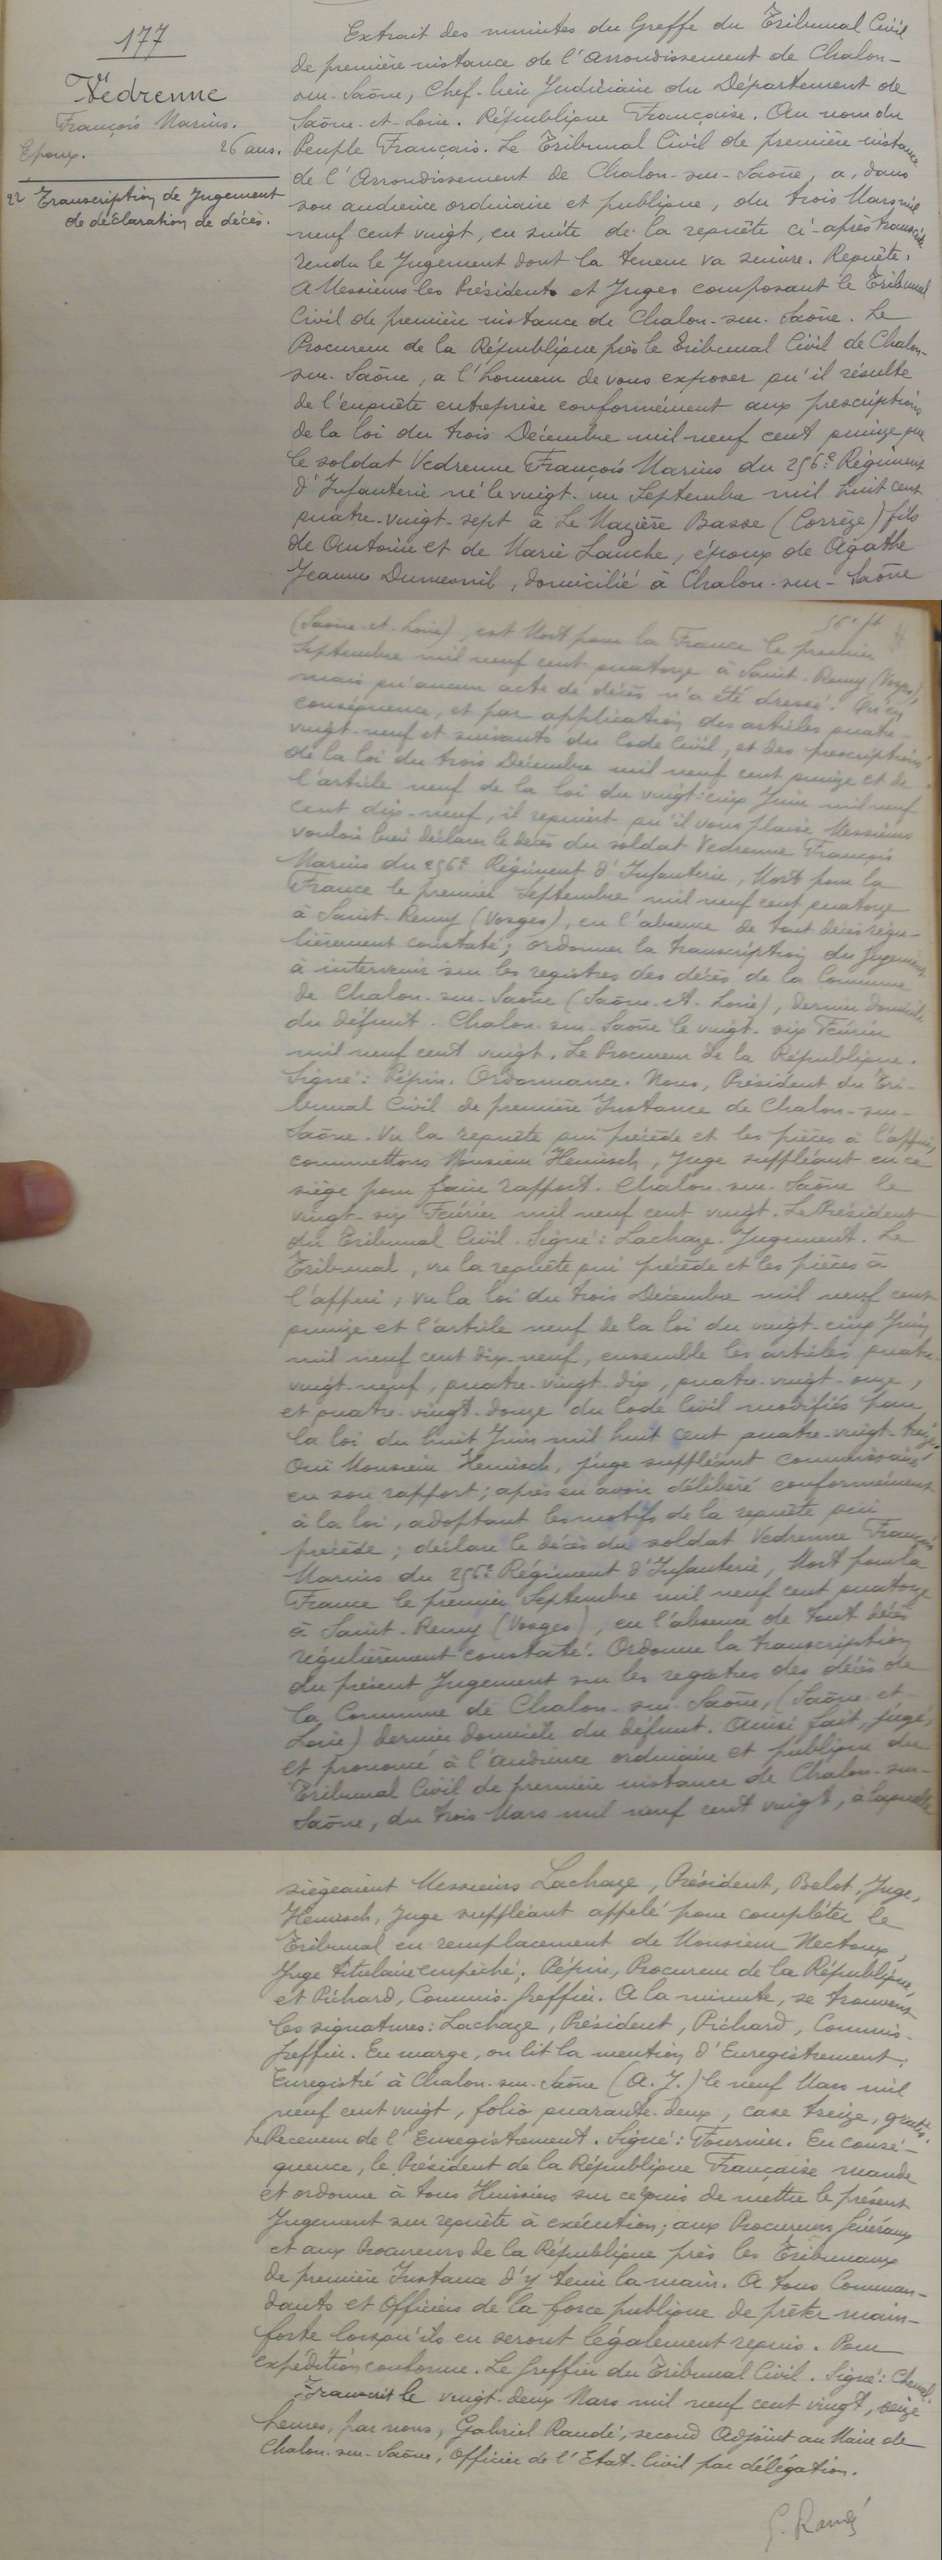 177
Vedrenne
François Marius.
Epoux. 26 ans.
22 Transcription de Jugement
de déclaration de décès.
Extrait des minutes du Greffe du Tribunal Civil
de première instance de l'arrondissement de Chalon-
sur-Saône, Chef-lieu Judiciaire du Département de
Saône-et-Loire. République Française. Au nom du
Peuple Français. Le Tribunal Civil de première instance
de l'Arrondissement de Chalon-sur-Saône, a, dans
son audience ordinaire et publique, du trois Mars mil
neuf cent vingt, en suite de la requête ci-après transcrite
rendu le Jugement dont la teneur va suivre. Requête.
A Messieurs les Présidents et Juges composant le Tribunal
Civil de première instance de Chalon-sur-Saône. Le
Procureur de la République près le Tribunal Civil de Chalon-
sur-Saône, a l'honneur de vous exposer qu'il résulte
de l'enquête entreprise conformément aux prescriptions
de la loi du trois Décembre mil neuf cent quinze que
le soldat Vedrenne François Marius du 256e Régiment
d'Infanterie né le vingt-un Septembre mil huit cent
quatre-vingt-sept à Le Mazière Basse (Corrèze) fils
de Antoine et de Marie Lauche, époux de Agathe
Jeanne Dumesnil, domicilié à Chalon-sur-Saône
56e ft
(Saône-et-Loire), est Mort pour la France le premier
Septembre mil neuf cent quatorze à Saint-Remy (Vosges),
mais qu'aucun acte de décès n'a été dressé. Qu'en
conséquence, et par application des articles quatre-
vingt-neuf et suivants du Code Civil, et des prescriptions
de la loi du trois Décembre mil neuf cent quinze et de
l'article neuf de la loi du vingt-cinq Juin mil neuf
cent dix-neuf, il requiert qu'il vous plaise Messieurs
vouloir bien déclarer le décès du soldat Vedrenne François
Marius du 256e Régiment d'Infanterie, Mort pour la
France le premier Septembre mil neuf cent quatorze
à Saint-Remy (Vosges), en l'absence de tout décès régu-
lièrement constaté; ordonner la transcription du Jugement
à intervenir sur les registres des décès de la Commune
de Chalon-sur-Saône (Saône-et-Loire), dernier domicile
du défunt. Chalon-sur-Saône le vingt-six Février
mil neuf cent vingt. Le Procureur de la République.
Signé: Pépin. Ordonnance. Nous, Président du Tri-
bunal Civil de première Instance de Chalon-sur-
Saône. Vu la requête qui précède et les pièces à l'appui,
commettons Monsieur Hemisch, Juge suppléant en ce
siège pour faire rapport. Chalon-sur-Saône le
vingt-six Février mil neuf cent vingt. Le Président
du Tribunal Civil. Signé: Lachaze. Jugement. Le
Tribunal, vu la requête qui précède et les pièces à
l'appui; vu la loi du trois Décembre mil neuf cent
quinze et l'article neuf de la loi du vingt-cinq Juin
mil neuf cent dix-neuf, ensemble les articles quatre-
vingt-neuf, quatre-vingt-dix, quatre-vingt-onze,
et quatre-vingt-douze du Code Civil modifiés par
la loi du huit Juin mil huit cent quatre-vingt-treize.
Ouï Monsieur Hemisch, juge suppléant commissaire
en son rapport; après en avoir délibéré conformément
à la loi, adoptant les motifs de la requête qui
précède; déclare le décès du soldat Vedrenne François
Marius du 256e Régiment d'Infanterie, Mort pour la
France le premier Septembre mil neuf cent quatorze
à Saint-Remy (Vosges), en l'absence de tout décès
régulièrement constaté. Ordonne la transcription
du présent Jugement sur les registres des décès de
la Commune de Chalon-sur-Saône, (Saône-et-
Loire) dernier domicile du défunt. Ainsi fait, jugé,
et prononcé à l'audience ordinaire et publique du
Tribunal Civil de première instance de Chalon-sur-
Saône, du trois Mars mil neuf cent vingt, à laquelle
siègeaient Messieurs Lachaze, Président, Belot, Juge,
Hemisch, Juge suppléant appelé pour compléter le
Tribunal en remplacement de Monsieur Nectoux,
Juge titulaire empêché; Pépin, Procureur de la République,
et Pichard, Commis-greffier. A la minute, se trouvent
les signatures: Lachaze, Président, Pichard, Commis-
greffier. En marge, on lit la mention d'Enregistrement.
Enregistré à Chalon-sur-Saône (A.J.) le neuf Mars mil
neuf cent vingt, folio quarante-deux, case treize, gratis.
Le Receveur de l'Enregistrement. Signé: Fournier. En consé-
quence, le Président de la République Française mande
et ordonne à tous Huissiers sur ce requis de mettre le présent
Jugement sur requête à exécution; aux Procureurs généraux
et aux Procureurs de la République près les Tribunaux
de première Instance d'y tenir la main. A tous Comman-
dants et Officiers de la force publique de prêter main-
forte lorsqu'ils en seront légalement requis. Pour
expédition conforme. Le Greffier du Tribunal Civil. Signé:
Transcrit le vingt-deux Mars mil neuf cent vingt, seize
heures, par nous, Gabriel Raudé, second Adjoint au Maire de
Chalon-sur-Saône, Officier de l'Etat-Civil par délégation.
G. Raudé